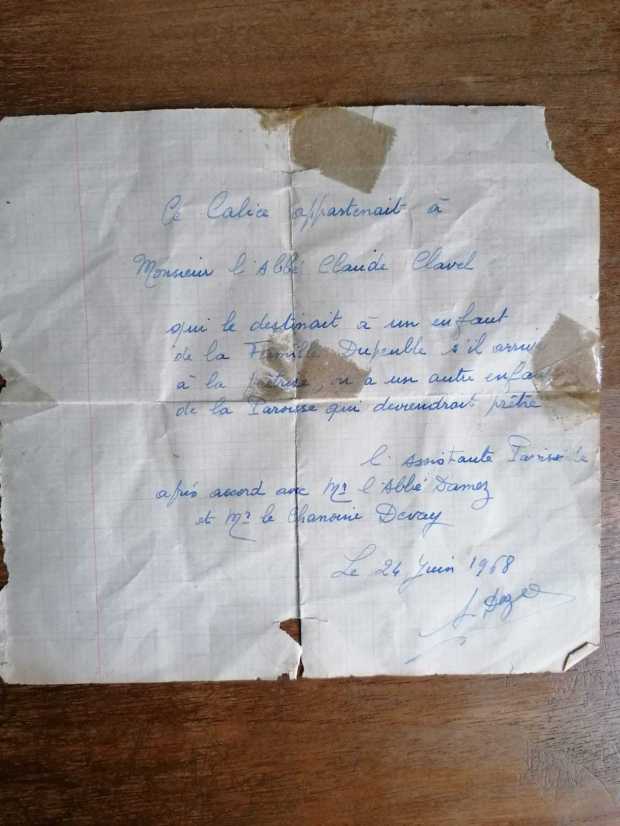 Ce Calice appartenait à
Monsieur l'Abbé Claude Clavel
qui le destinait à un enfant
de la Famille Dupeuble s'il arrive
à la prêtrise, ou a un autre enfant
de la Paroisse qui deviendrait prêtre
l'Assistante Paroissiale
après accord avec Mr l'Abbé Damez
et Mr le Chanoine Devay
Le 24 Juin 1968